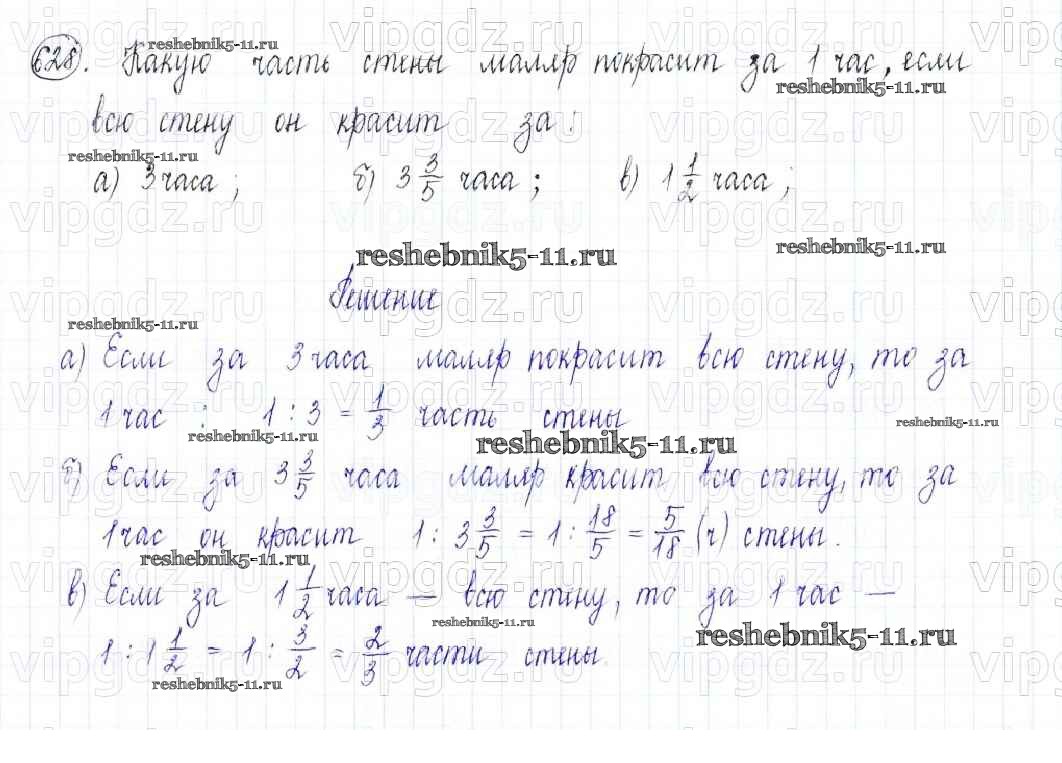 628. Какую часть стены маляр покрасит за 1 час, если
всю стену он красит за:
а) 3 часа; б) 3 3/5 часа; в) 1 1/2 часа;
Решение
а) Если за 3 часа маляр покрасит всю стену, то за
1 час : 1 : 3 = 1/3 часть стены
б) Если за 3 3/5 часа маляр красит всю стену, то за
1 час он красит 1 : 3 3/5 = 1 : 18/5 = 5/18 (ч) стены.
в) Если за 1 1/2 часа — всю стену, то за 1 час —
1 : 1 1/2 = 1 : 3/2 = 2/3 части стены.
reshebnik5-11.ru
vipgdz.ru